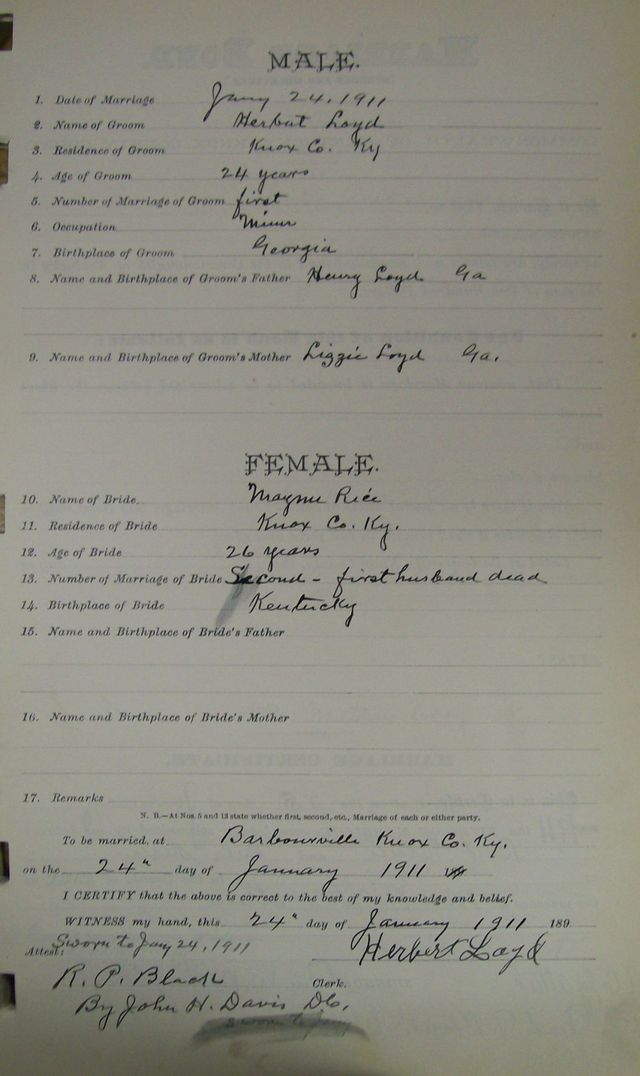 MALE.
1. Date of Marriage Jany 24, 1911
2. Name of Groom Herbert Loyd
3. Residence of Groom Knox Co. Ky
4. Age of Groom 24 years
5. Number of Marriage of Groom first
6. Occupation Miner
7. Birthplace of Groom Georgia
8. Name and Birthplace of Groom's Father Henry Loyd Ga
9. Name and Birthplace of Groom's Mother Lizzie Loyd Ga.
FEMALE.
10. Name of Bride Mayme Rice
11. Residence of Bride Knox Co. Ky.
12. Age of Bride 26 years
13. Number of Marriage of Bride Second - first husband dead
14. Birthplace of Bride Kentucky
15. Name and Birthplace of Bride's Father
16. Name and Birthplace of Bride's Mother
17. Remarks
N. B.—At Nos. 5 and 13 state whether first, second, etc., Marriage of each or either party.
To be married at Barbourville Knox Co. Ky.
on the 24" day of January 1911
I CERTIFY that the above is correct to the best of my knowledge and belief.
WITNESS my hand, this 24" day of January 1911 189
Attest: Sworn to Jany 24, 1911 Herbert Loyd
R. P. Black Clerk.
By John H. Davis D.C.